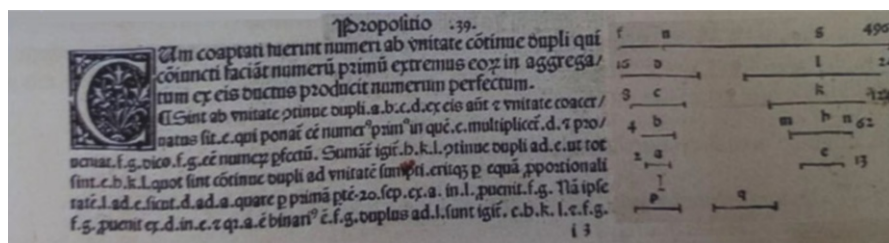 Propositio .39.
CUm coaptati fuerint numeri ab vnitate cõtinue dupli qui
cõiuncti faciãt numerũ primũ extremus eoꝝ in aggrega/
tum ex eis ductus producit numerum perfectum.
¶ Sint ab vnitate ꝯtinue dupli.a.b.c.d.ex eis aũt ⁊ vnitate coacer/
uatus sit.e.qui ponat᷑ eẽ numerꝰ primꝰ in quẽ.e.multiplicet᷑.d.⁊ ꝓ/
ueniat.f.g.dico.f.g.eẽ numeꝝ ꝑfectũ. Sumãt᷑ igit᷑.h.k.l.ꝯtinue dupli ad.e.ut tot
sint.e.h.k.l.quot sint cõtinue dupli ad vnitatẽ sumpti.eritqꝫ ꝑ equã ꝓportionali
tatẽ.l.ad.e.sicut.d.ad.a.quare ꝑ primã ptẽ.20.sep.ex.a.in.l.ꝓuenit.f.g. Nã ipse
f.g.ꝓuenit ex.d.in.e.⁊ qꝛ.a.ẽ binariꝰ ẽ.f.g.duplus ad.l.sunt igit᷑.e.h.k.l.⁊.f.g.
i 3
f n g 496
16 d l
8 c k
4 b m h n 62
2 a e
p q